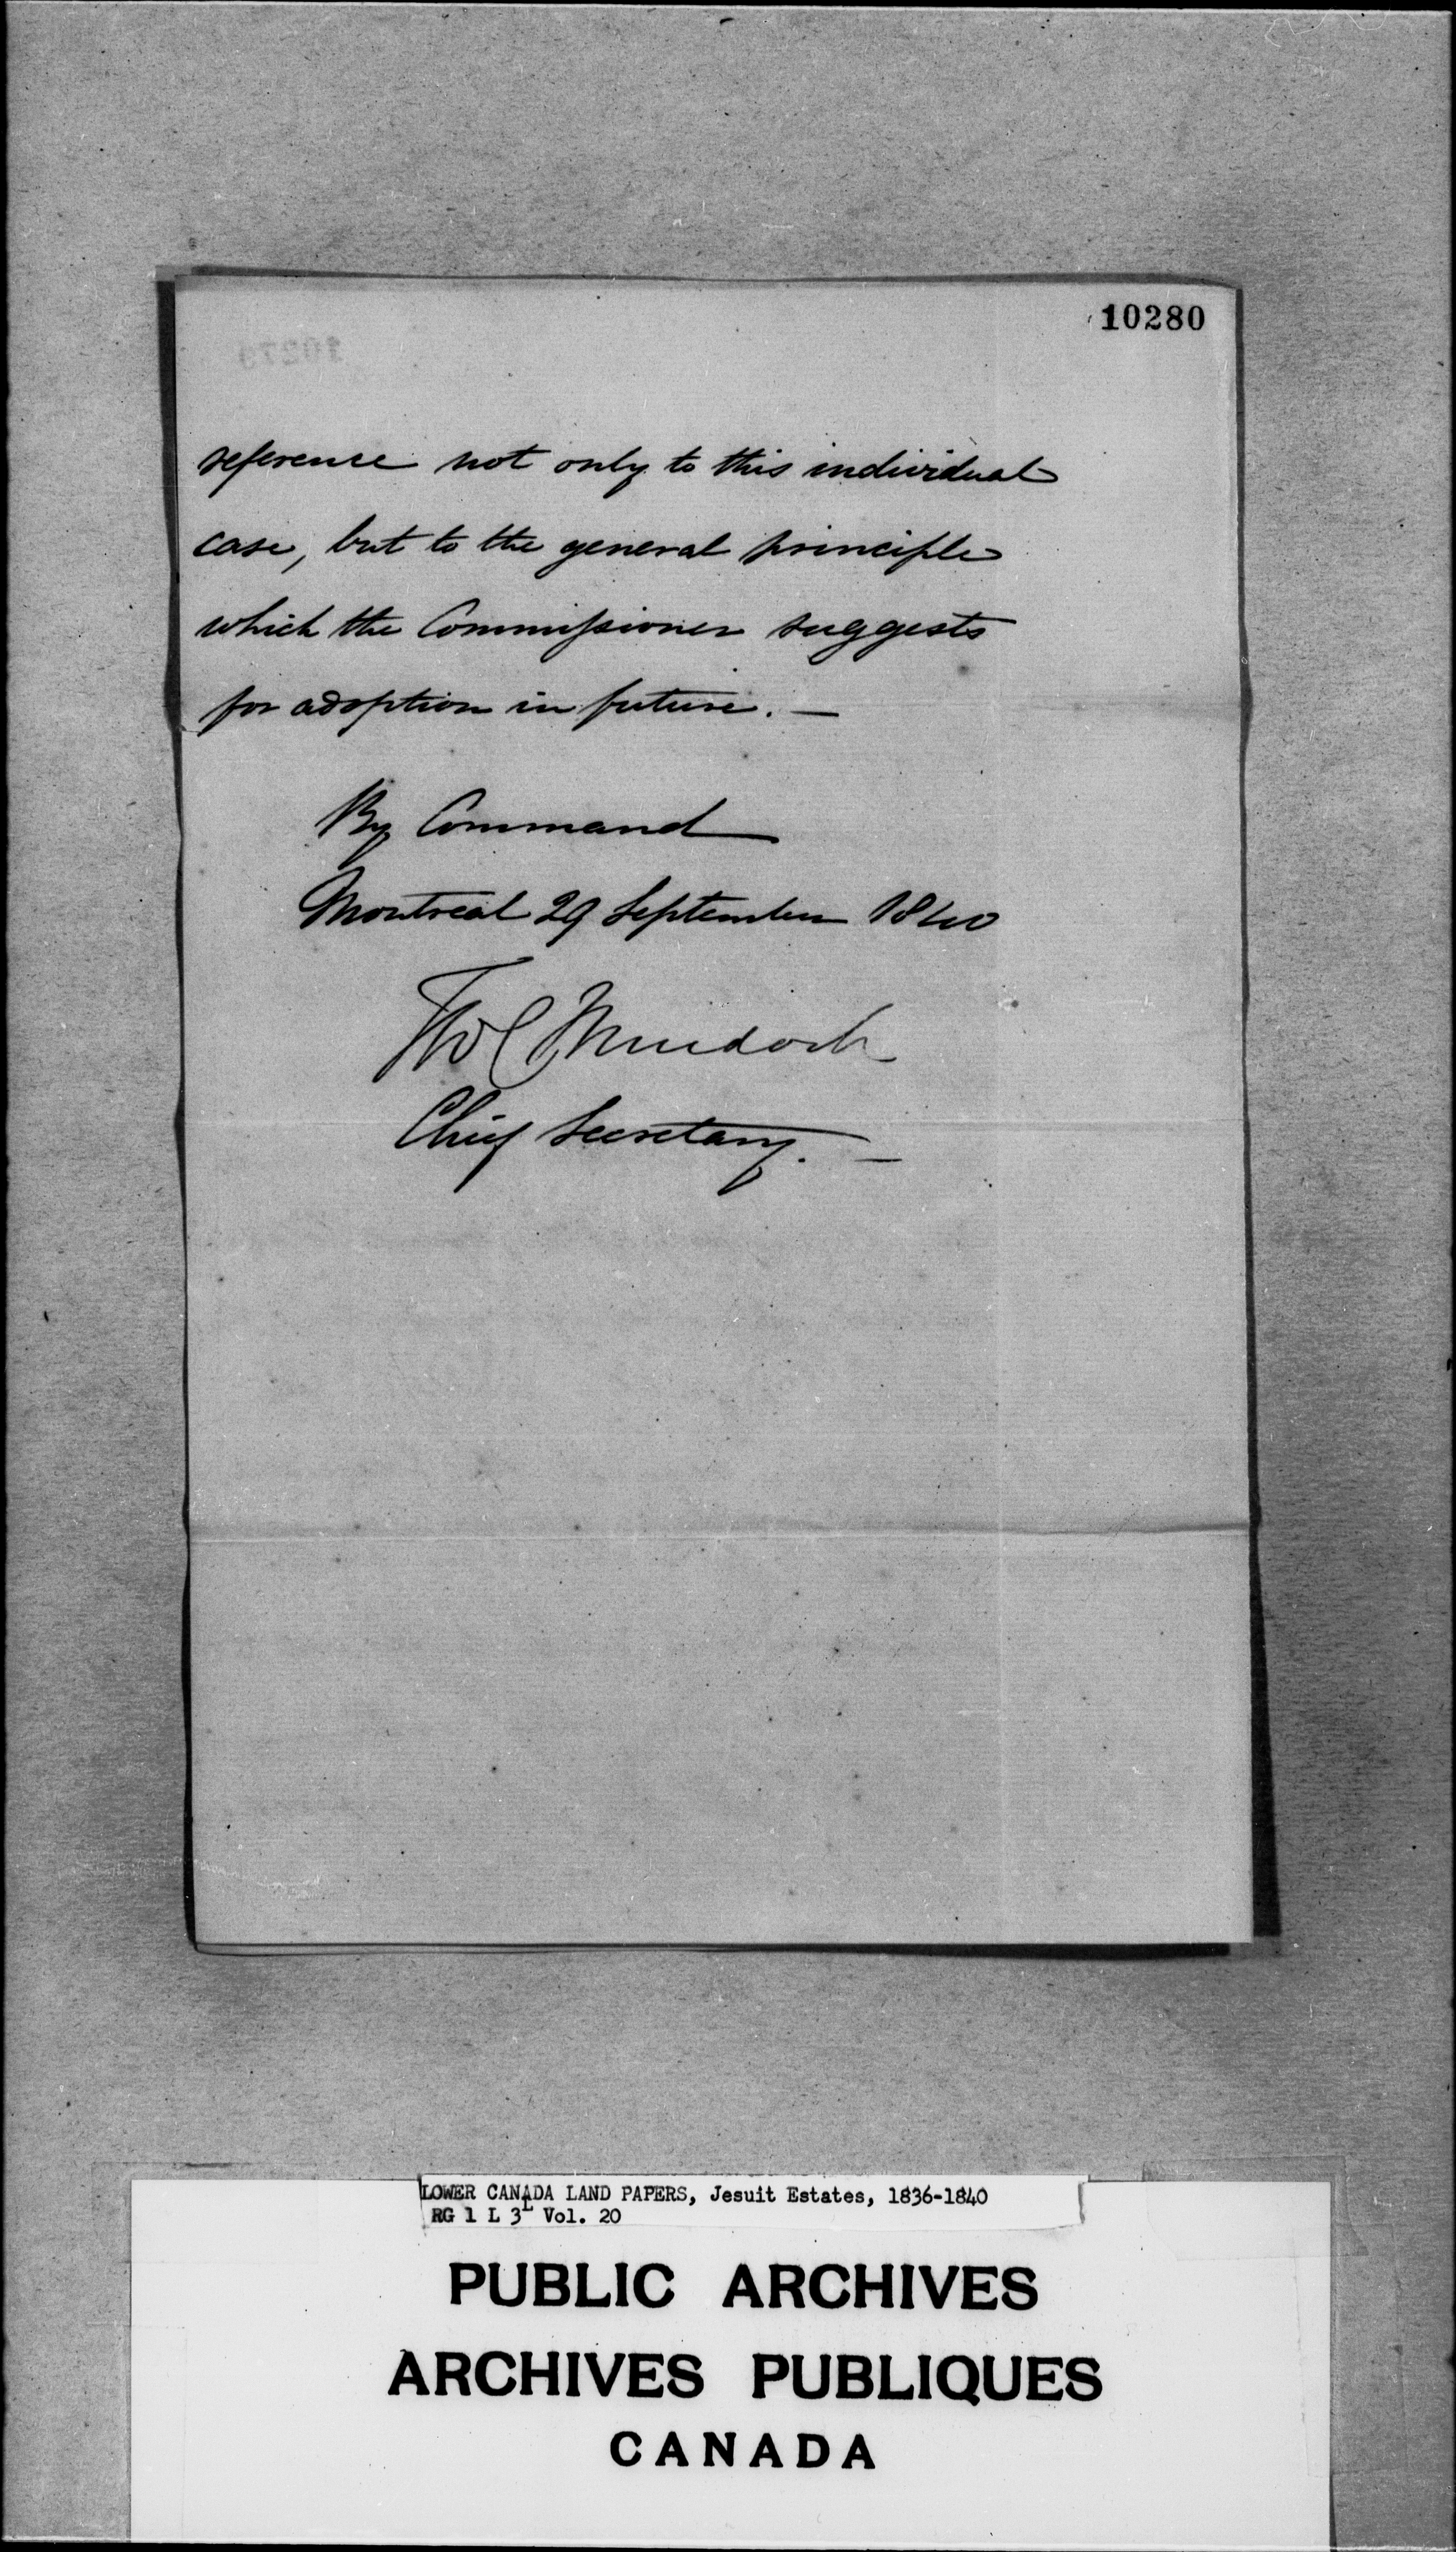 10280
reference not only to this individual
case, but to the general principle
which the Commissioner suggests
for adoption in future. —
By Command
Montreal 29 September 1840
Tho C Murdoch
Chief Secretary. —
LOWER CANADA LAND PAPERS, Jesuit Estates, 1836-1840
RG 1 L 3L Vol. 20
PUBLIC ARCHIVES
ARCHIVES PUBLIQUES
CANADA